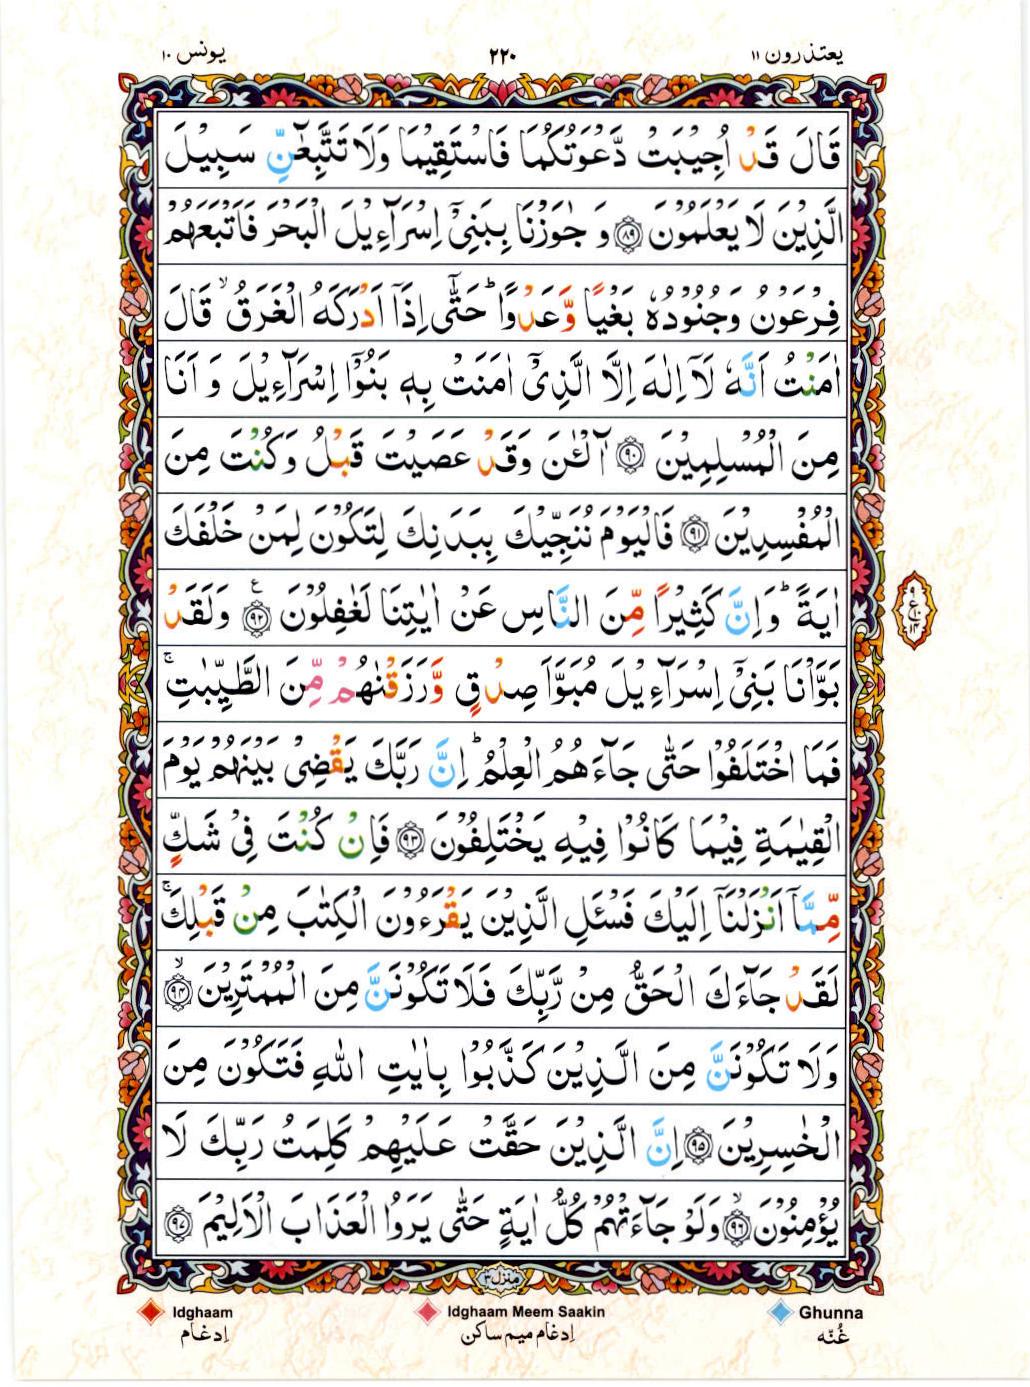 یعتذرون ۱۱ ۲۲۰ یونس ۱۰
قَالَ قَدْ اُجِیْبَتْ دَّعْوَتُكُمَا فَاسْتَقِیْمَا وَلَا تَتَّبِعٰٓنِّ سَبِیْلَ
الَّذِیْنَ لَا یَعْلَمُوْنَ ﴿۸۹﴾ وَ جٰوَزْنَا بِبَنِیْۤ اِسْرَآءِیْلَ الْبَحْرَ فَاَتْبَعَهُمْ
فِرْعَوْنُ وَجُنُوْدُهٗ بَغْیًا وَّعَدْوًا ؕ حَتّٰۤی اِذَاۤ اَدْرَكَهُ الْغَرَقُ ۙ قَالَ
اٰمَنْتُ اَنَّهٗ لَاۤ اِلٰهَ اِلَّا الَّذِیْۤ اٰمَنَتْ بِهٖ بَنُوْۤا اِسْرَآءِیْلَ وَ اَنَا
مِنَ الْمُسْلِمِیْنَ ﴿۹۰﴾ آٰلْـٰٔنَ وَقَدْ عَصَیْتَ قَبْلُ وَكُنْتَ مِنَ
الْمُفْسِدِیْنَ ﴿۹۱﴾ فَالْیَوْمَ نُنَجِّیْكَ بِبَدَنِكَ لِتَكُوْنَ لِمَنْ خَلْفَكَ
اٰیَةً ؕ وَاِنَّ كَثِیْرًا مِّنَ النَّاسِ عَنْ اٰیٰتِنَا لَغٰفِلُوْنَ ﴿۹۲﴾ ع وَلَقَدْ
بَوَّاْنَا بَنِیْۤ اِسْرَآءِیْلَ مُبَوَّاَ صِدْقٍ وَّرَزَقْنٰهُمْ مِّنَ الطَّیِّبٰتِ ۚ
فَمَا اخْتَلَفُوْا حَتّٰی جَآءَهُمُ الْعِلْمُ ؕ اِنَّ رَبَّكَ یَقْضِیْ بَیْنَهُمْ یَوْمَ
الْقِیٰمَةِ فِیْمَا كَانُوْا فِیْهِ یَخْتَلِفُوْنَ ﴿۹۳﴾ فَاِنْ كُنْتَ فِیْ شَكٍّ
مِّمَّاۤ اَنْزَلْنَاۤ اِلَیْكَ فَسْـَٔلِ الَّذِیْنَ یَقْرَءُوْنَ الْكِتٰبَ مِنْ قَبْلِكَ ۚ
لَقَدْ جَآءَكَ الْحَقُّ مِنْ رَّبِّكَ فَلَا تَكُوْنَنَّ مِنَ الْمُمْتَرِیْنَ ۙ ﴿۹۴﴾
وَلَا تَكُوْنَنَّ مِنَ الَّذِیْنَ كَذَّبُوْا بِاٰیٰتِ اللّٰهِ فَتَكُوْنَ مِنَ
الْخٰسِرِیْنَ ﴿۹۵﴾ اِنَّ الَّذِیْنَ حَقَّتْ عَلَیْهِمْ كَلِمَتُ رَبِّكَ لَا
یُؤْمِنُوْنَ ۙ ﴿۹۶﴾ وَلَوْ جَآءَتْهُمْ كُلُّ اٰیَةٍ حَتّٰی یَرَوُا الْعَذَابَ الْاَلِیْمَ ﴿۹۷﴾
منزل ۳
Idghaam Idghaam Meem Saakin Ghunna
اِدغام اِدغام میم ساکن غُنّه